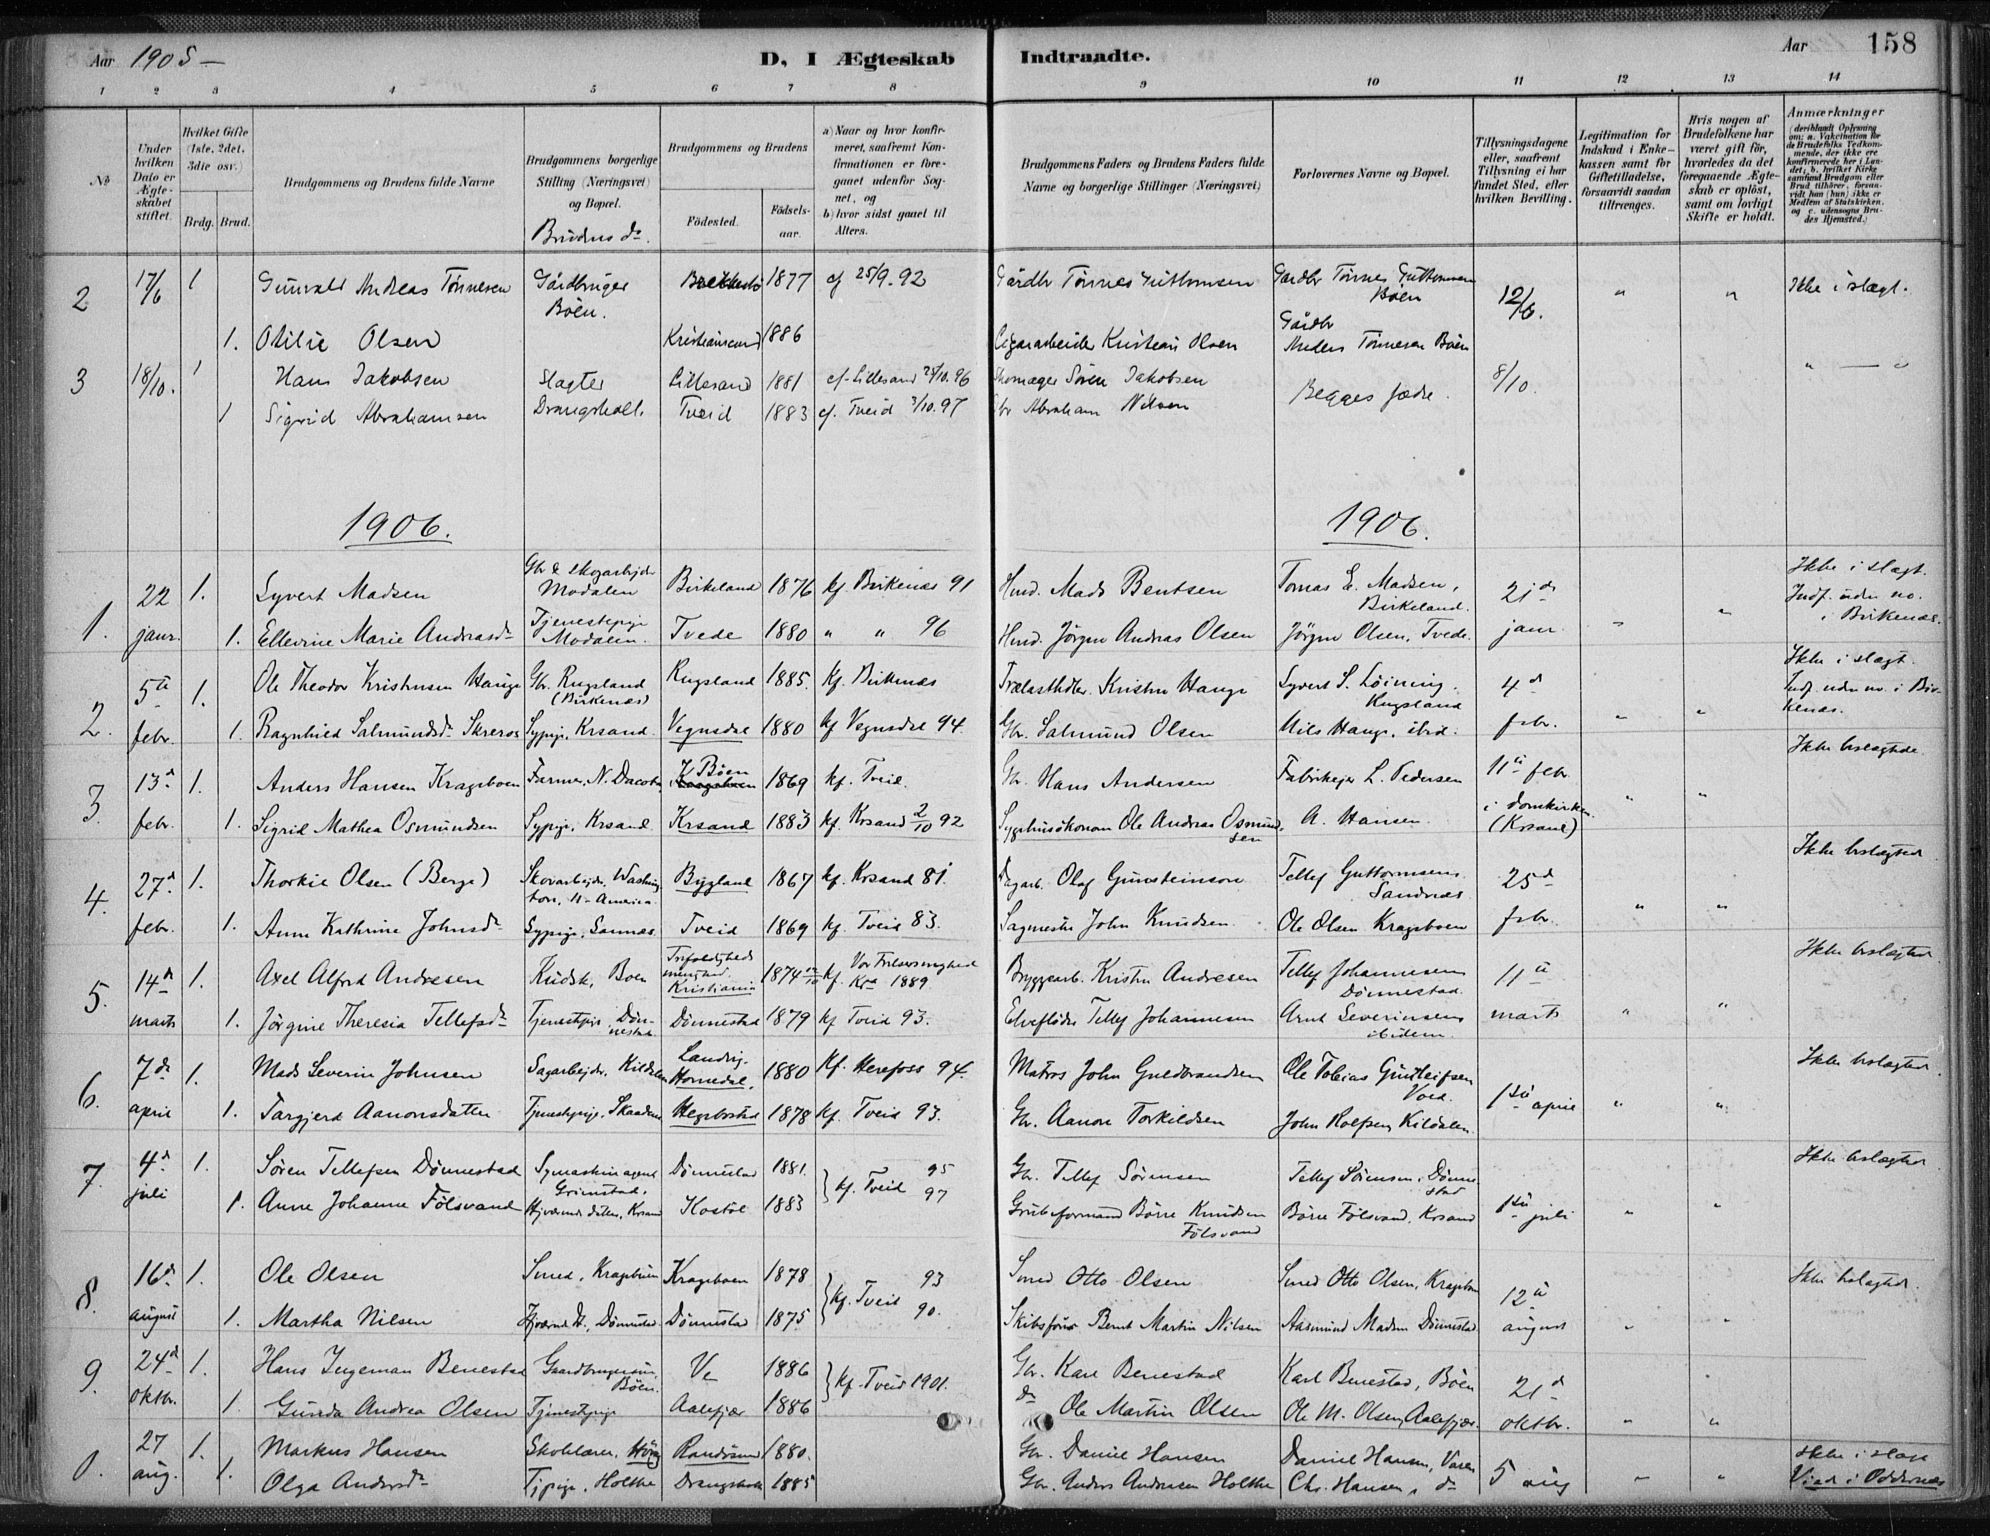 Aar 1905 —
D, I Ægteskab Indtraadte.
Aar 158
1 2 3 4 5 6 7 8 9 10 11 12 13 14
No
Under hvilken Dato er Ægteskabet stiftet.
Hvilket Gifte (1ste, 2det, 3die osv.)
Brdg. Brud.
Brudgommens og Brudens fulde Navne
Brudgommens borgerlige Stilling (Næringsvei) og Bopæl.
Brudens do.
Brudgommens og Brudens
Fødested.
Fødselsaar.
a) Naar og hvor konfirmeret, saafremt Konfirmationen er foregaaet udenfor Sognet, og
b) hvor sidst gaaet til Alters.
Brudgommens Faders og Brudens Faders fulde Navne og borgerlige Stillinger (Næringsvei)
Forlovernes Navne og Bopæl.
Tillysningsdagene eller, saafremt Tillysning ei har fundet Sted, efter hvilken Bevilling.
Legitimation for Indskud i Enkekassen samt for Giftetilladelse, forsaavidt saadan tiltrænges.
Hvis nogen af Brudefolkene har været gift før, hvorledes da det foregaaende Ægteskab er opløst, samt om lovligt Skifte er holdt.
Anmærkninger
(deriblandt Oplysning om: a. Vakcination for de Brudefolks Vedkommende, der ikke ere konfirmerede her i Landet; b. hvilket Kirkesamfund Brudgom eller Brud tilhører, forsaavidt han (hun) ikke er Medlem af Statskirken. og c. udensogns Brudes Hjemsted.)
2 17/6 1 Gunvald Andreas Tønnesen Gårdbruger Böen. 1877 cf 25/9.92 Gårdbr Tønnes Guttormsen Gardbr Tønnes Guttormsen Böen 12/6. " " Ikke i slægt.
1. Otilie Olsen Kristiansand 1886 Cigararbeider Kristian Olsen Gårdbr Anders Tønnesen Böen
3 18/10. 1 Hans Jakobsen Slagter Lillesand 1881 cf. Lillesand 25/10.96 Skomager Søren Jakobsen Begges fædre. 8/10. " — "
1 Sigrid Abrahamsen Drangsholt. Tveid 1883 cf. Tveid 3/10.97 Gbr Abraham Nilsen
1906. 1906.
1. 22 janr. 1. Syvert Madsen Gbr & skogarbejder Modalen Birkeland 1876 kf. Birkenæs 91 Husd. Mads Bentsen Tomas E. Madsen, Birkeland. 21de janr. " " Ikke i slægt. Indf. uden no. i Birkenæs.
1. Ellevine Marie Andrasdr Tjenestepige Modalen. Tvede 1880 " " 96 Husd. Jörgen Andreas Olsen Jörgen Olsen, Tvede.
2. 5te febr. 1. Ole Theodor Kristensen Hauge Gbr. Rugsland (Birkenæs) Rugsland 1885. Kf. Birkenæs Trælasthdler. Kristen Hauge Syvert S. Löining, Rugsland 4de febr. " " Ikke i slægt. Indf. uden no. i Birkenæs.
1. Ragnhild Salmundsdr Skreros Sypige, Krsand. Vegusdal 1880 kf Vegusdal 94. Gbr. Salmund Olsen Nils Hauge, ibid.
3. 13de febr. 1. Anders Hansen Kragsboen Farmer, N. Dacota K Böen 1869 kf. Tveid. Gbr. Hans Andersen Fabrikejer L. Pedersen 11te febr i domkirken (Krsand) " " Ikke beslægtede
1. Sigrid Mathea Osmundsen Sypige, Krsand. Krsand 1883 kf. Krsand 2/10 92 Sygehusökonom Ole Andreas Osmundsen A. Hansen.
4. 27de febr. 1. Thorkil Olsen (Berge) Skovarbejder, Washington, N-America. Bygland 1867 kf. Krsand 81. Dagarb. Olaf Gunsteinson Tellef Guttormsen, Sandnæs 25de febr. " " Ikke beslægtede.
1. Anne Kathrine Johnsdr Sypige, Sannæs. Tveid 1869 kf. Tveid 83. Sagmester John Knudsen. Ole Olsen Kragsboen
5. 14de marts 1. Axel Alfred Andresen Kudsk, Boen Trefoldigheds menighed. Kristiania 1874 kf. Vor Frelsersmenighed Kra 1889 Bryggearb. Kristen Andresen Tellef Johannesen Dönnestad. 11te marts " " Ikke beslægtede.
1. Jörgine Theresia Tellefsdr Tjenestepige Dönnestad Dönnestad 1879 kf Tveid 93. Elveflöder Tellef Johannesen Arnt Severinsen ibidem.
6. 7de april 1. Mads Severin Johnsen Sagarbejder. Kildalen Landvig. Homedal. 1880 Kf. Herefoss 94. Matros John Guldbrandsen Ole Tobias Gunleifsen Void. 1ste april " " Ikke beslægtede.
1. Targjerd Aanonsdatter Tjenestepige. Hegebostad 1878 kf. Tveid 93. Gbr. Aanon Torkildsen John Rolfsen, Kildalen.
7. 4de juli 1. Sören Tellefsen Dönnestad Symaskinagent Grimstad. Dönnestad 1881. kf. Tveid 95 Gbr. Tellef Sörensen Tellef Sörensen, Dönnestad 1ste juli " " Ikke beslægtede.
1. Anne Johanne Fölsvand Hjemvær. datter, Krsand Kostöl 1883 97 Grubeformand Börre Knudsen Fölsvand Börre Fölsvand, Krsand
8. 16de august 1. Ole Olsen Smed, Kragsboen Kragsboen 1878 kf. Tveid 93 Smed Otto Olsen Smed Otto Olsen, Kragsboen 12te august " " Ikke beslægtede.
1. Martha Nilsen Dönnestad. Dönnestad 1875 90. Skibsförer Bernt Martin Nilsen Aasmund Madsen Dönnestad
9. 24de oktbr. 1. Hans Ingeman Benestad Gaardbrugersön, Böen. Ve 1886 kf. Tveid 1901. Gbr. Karl Benestad Karl Benestad, Böen 21de oktbr. " "
1. Gunda Andrea Olsen Tjenestepige Aalefjær 1886 do Ole Martin Olsen Ole M. Olsen, Aalefjær.
0. 27 aug. 1. Markus Hansen Skolelærer, Randösund 1880. Gbr. Daniel Hansen Daniel Hansen, 5 aug " " Ikke i slægt Viet i Oddernæs
1. Olga Andersdr Tjpige, Holthe Drangsholt 1885 Gbr. Anders Andersen Holthe Chr. Hansen, do